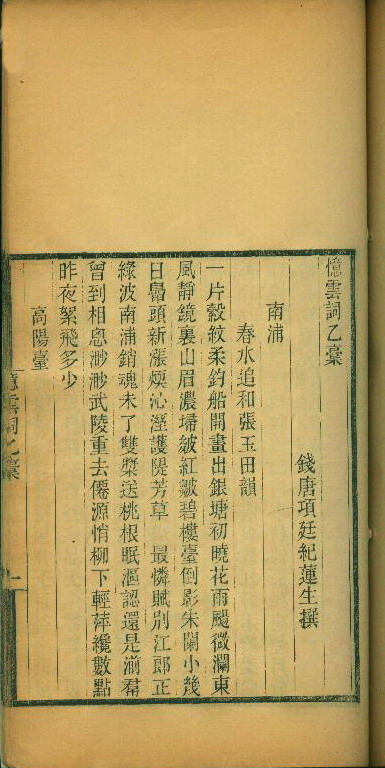 憶雲詞乙稾
錢唐項廷紀蓮生撰
南浦
春水追和張玉田韻
一片縠紋柔釣船開畫出銀塘初曉花雨颺微瀾東
風靜鏡裏山眉濃埽皴紅皺碧樓臺倒影朱闌小幾
日鷗頭新漲煗沁溼護隄芳草　最憐賦別江郎正
綠波南浦銷魂未了雙槳送桃根眠漚認還是湔裙
曾到相思渺渺武陵重去僊源悄柳下輕萍纔數點
昨夜絮飛多少
高陽臺
憶雲詞乙稾
一